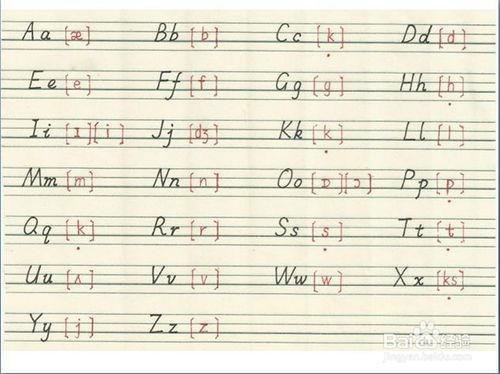 Aa [æ] Bb [b] Cc [k] Dd [d]
Ee [e] Ff [f] Gg [g] Hh [h]
Ii [ɪ][i] Jj [dʒ] Kk [k] Ll [l]
Mm [m] Nn [n] Oo [ɒ][ɔ] Pp [p]
Qq [k] Rr [r] Ss [s] Tt [t]
Uu [ʌ] Vv [v] Ww [w] Xx [ks]
Yy [j] Zz [z]
Baidu经验
jingyan.baidu.com